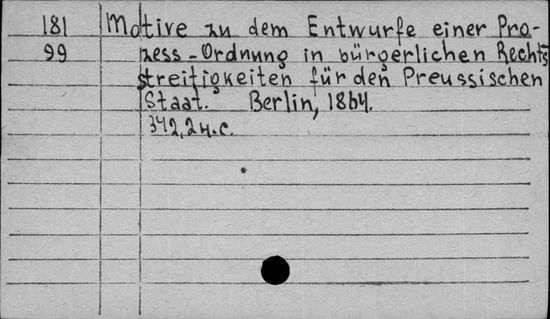 181 Motive zu dem Entwurfe einer Pro-
99 zess-Ordnung in bürgerlichen Rechts
streitigkeiten für den Preussischen
Staat. Berlin, 1864.
342,24.c.